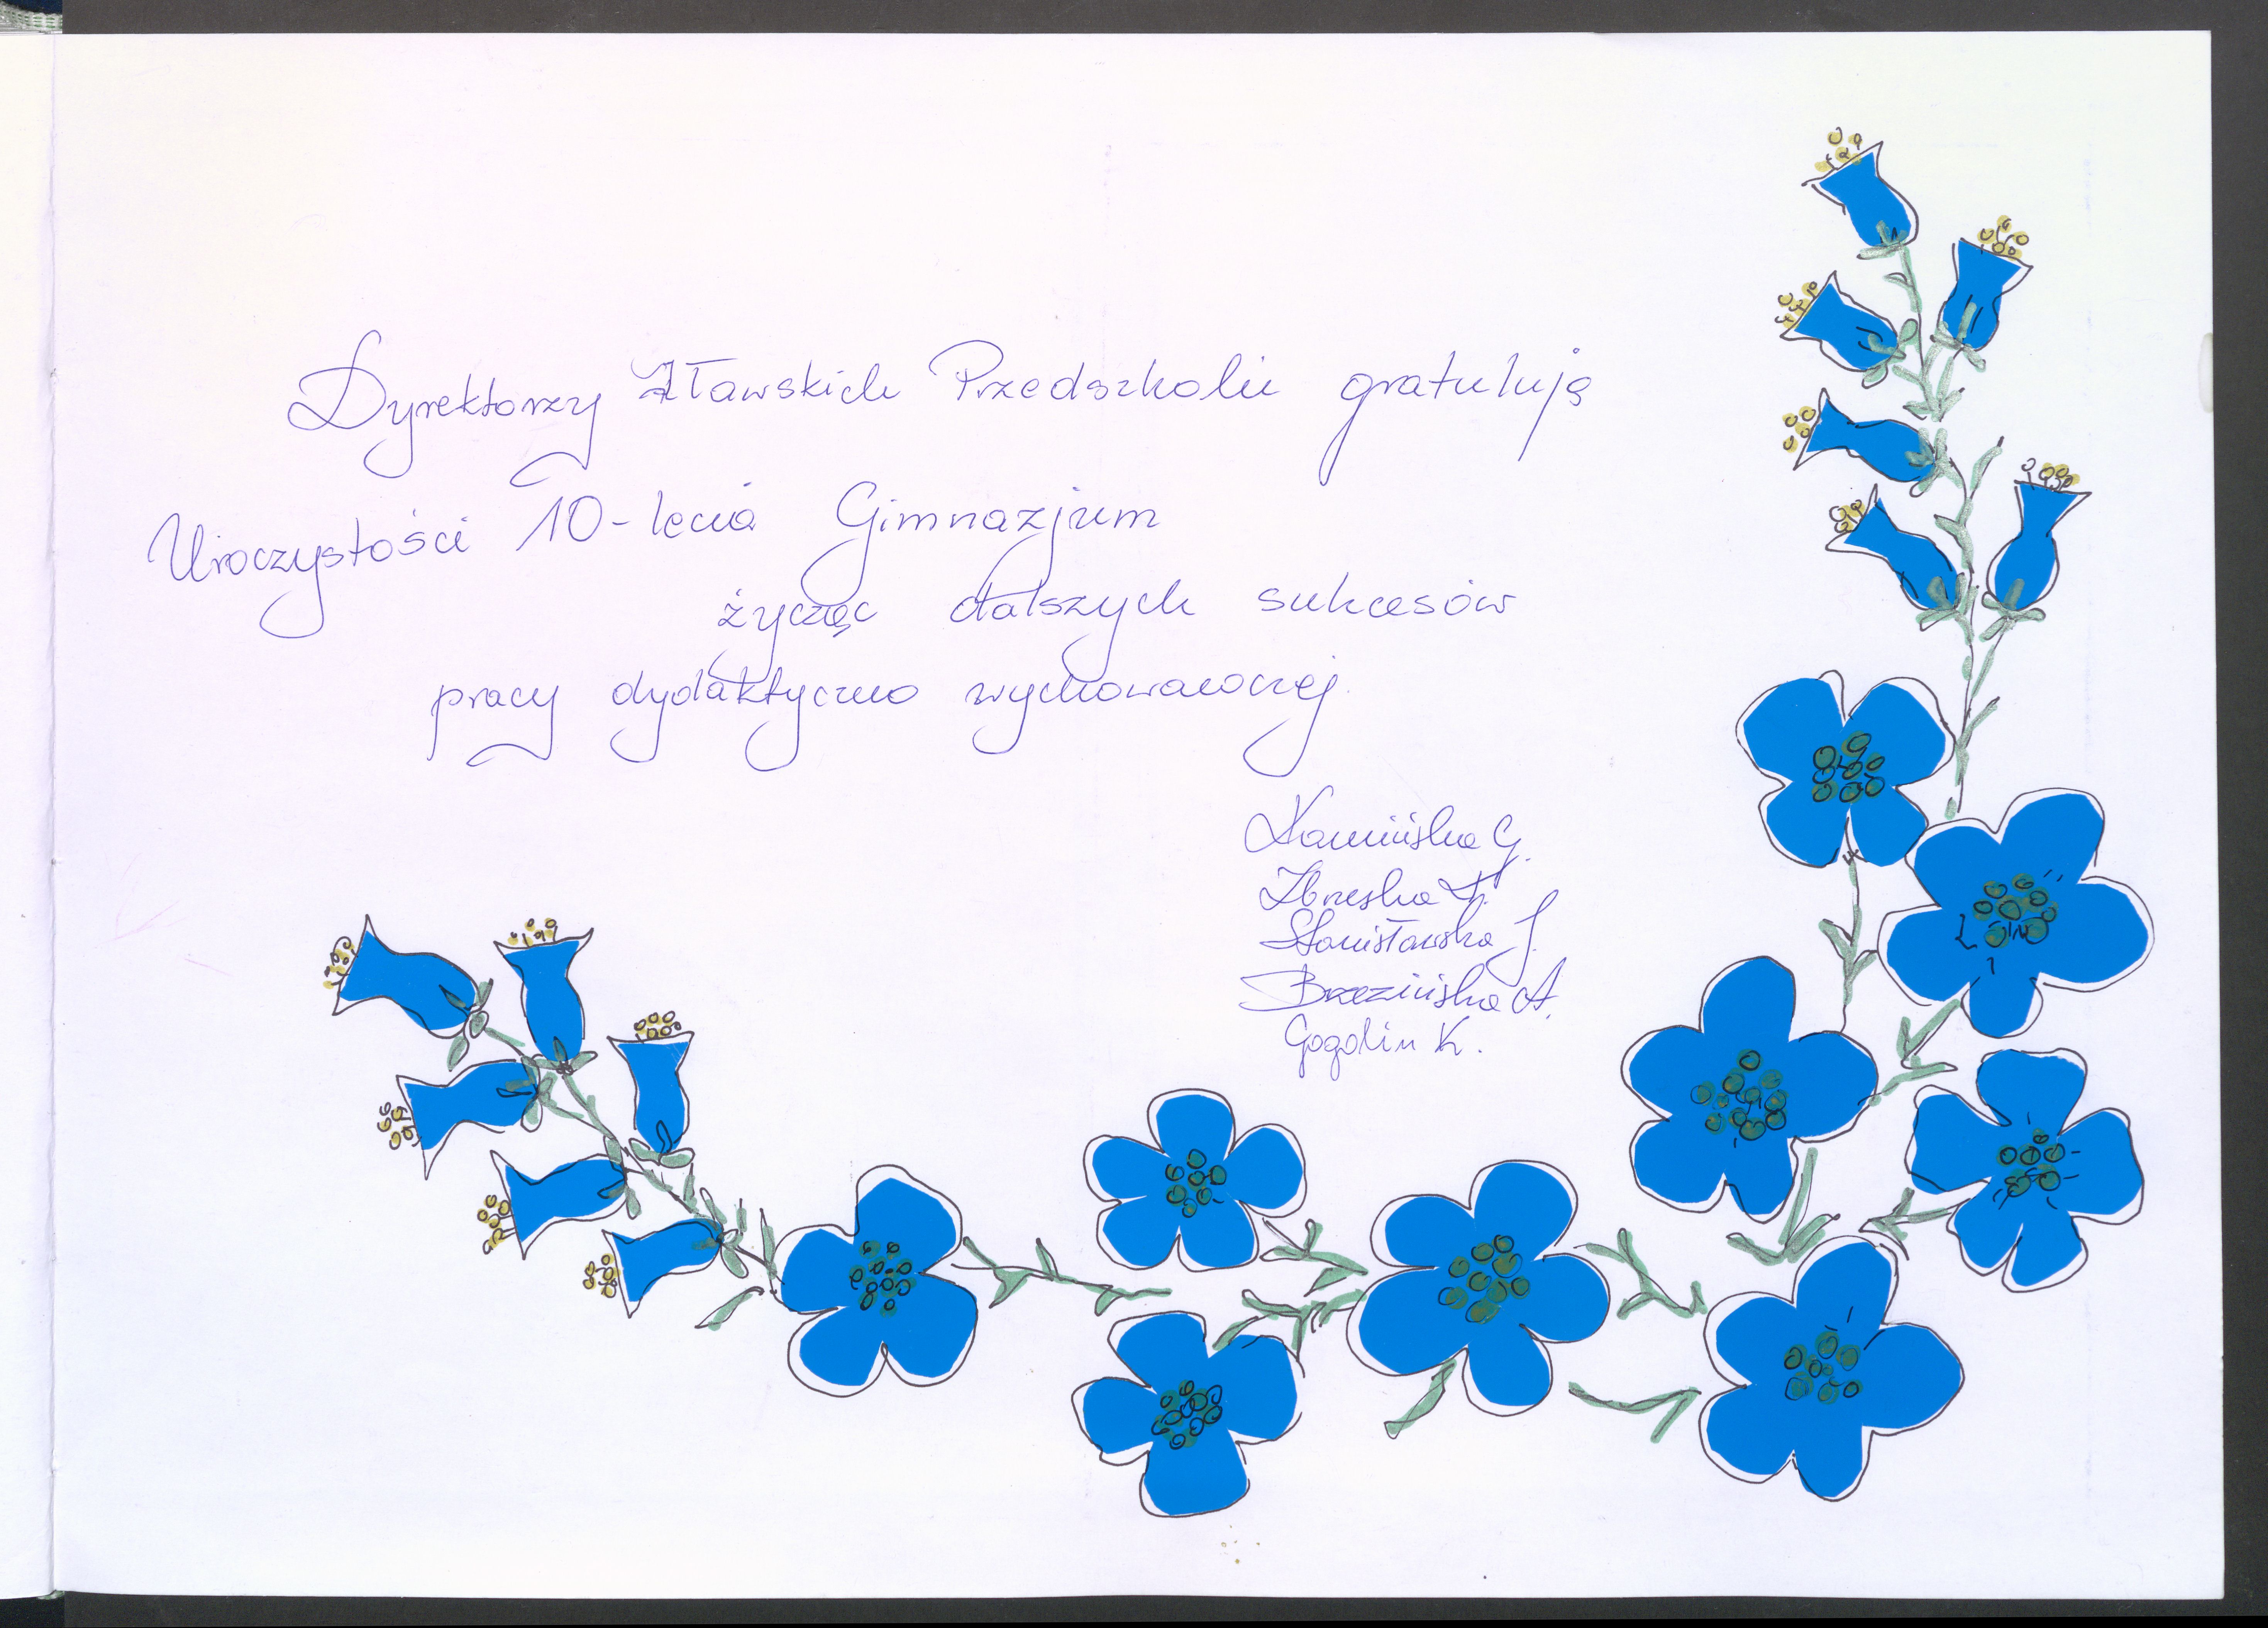 Dyrektorzy Iławskich Przedszkoli gratulują
Uroczystości 10-lecia Gimnazjum
życząc dalszych sukcesów
pracy dydaktyczno wychowawczej.
Kamińska G.
Stanisławska J.
Brzezińska A.
Gogolin K.